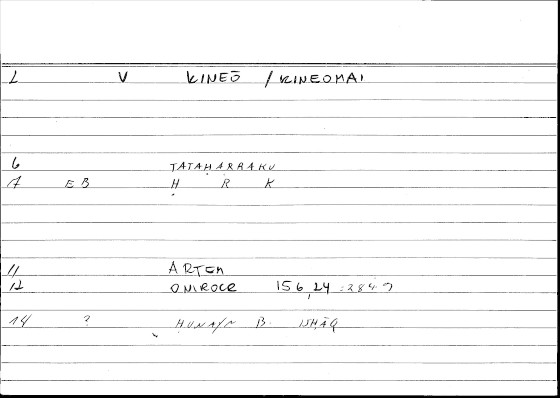 L V KINEŌ / KINEOMAI
6 TATAḤARRAKU
7 EB Ḥ R K
11 ARTEM
12 ONIROCR 156,24
14 ? ḤUNAYN B. ISḤĀQ